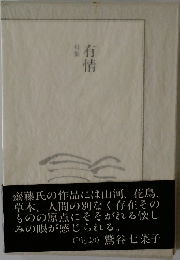 有情
句集
齋藤氏の作品には山河、花鳥、
草木、人間の別なく存在その
ものの原点にそそがれる懐し
みの眼が感じられる。
(「序」より) 鷲谷七菜子